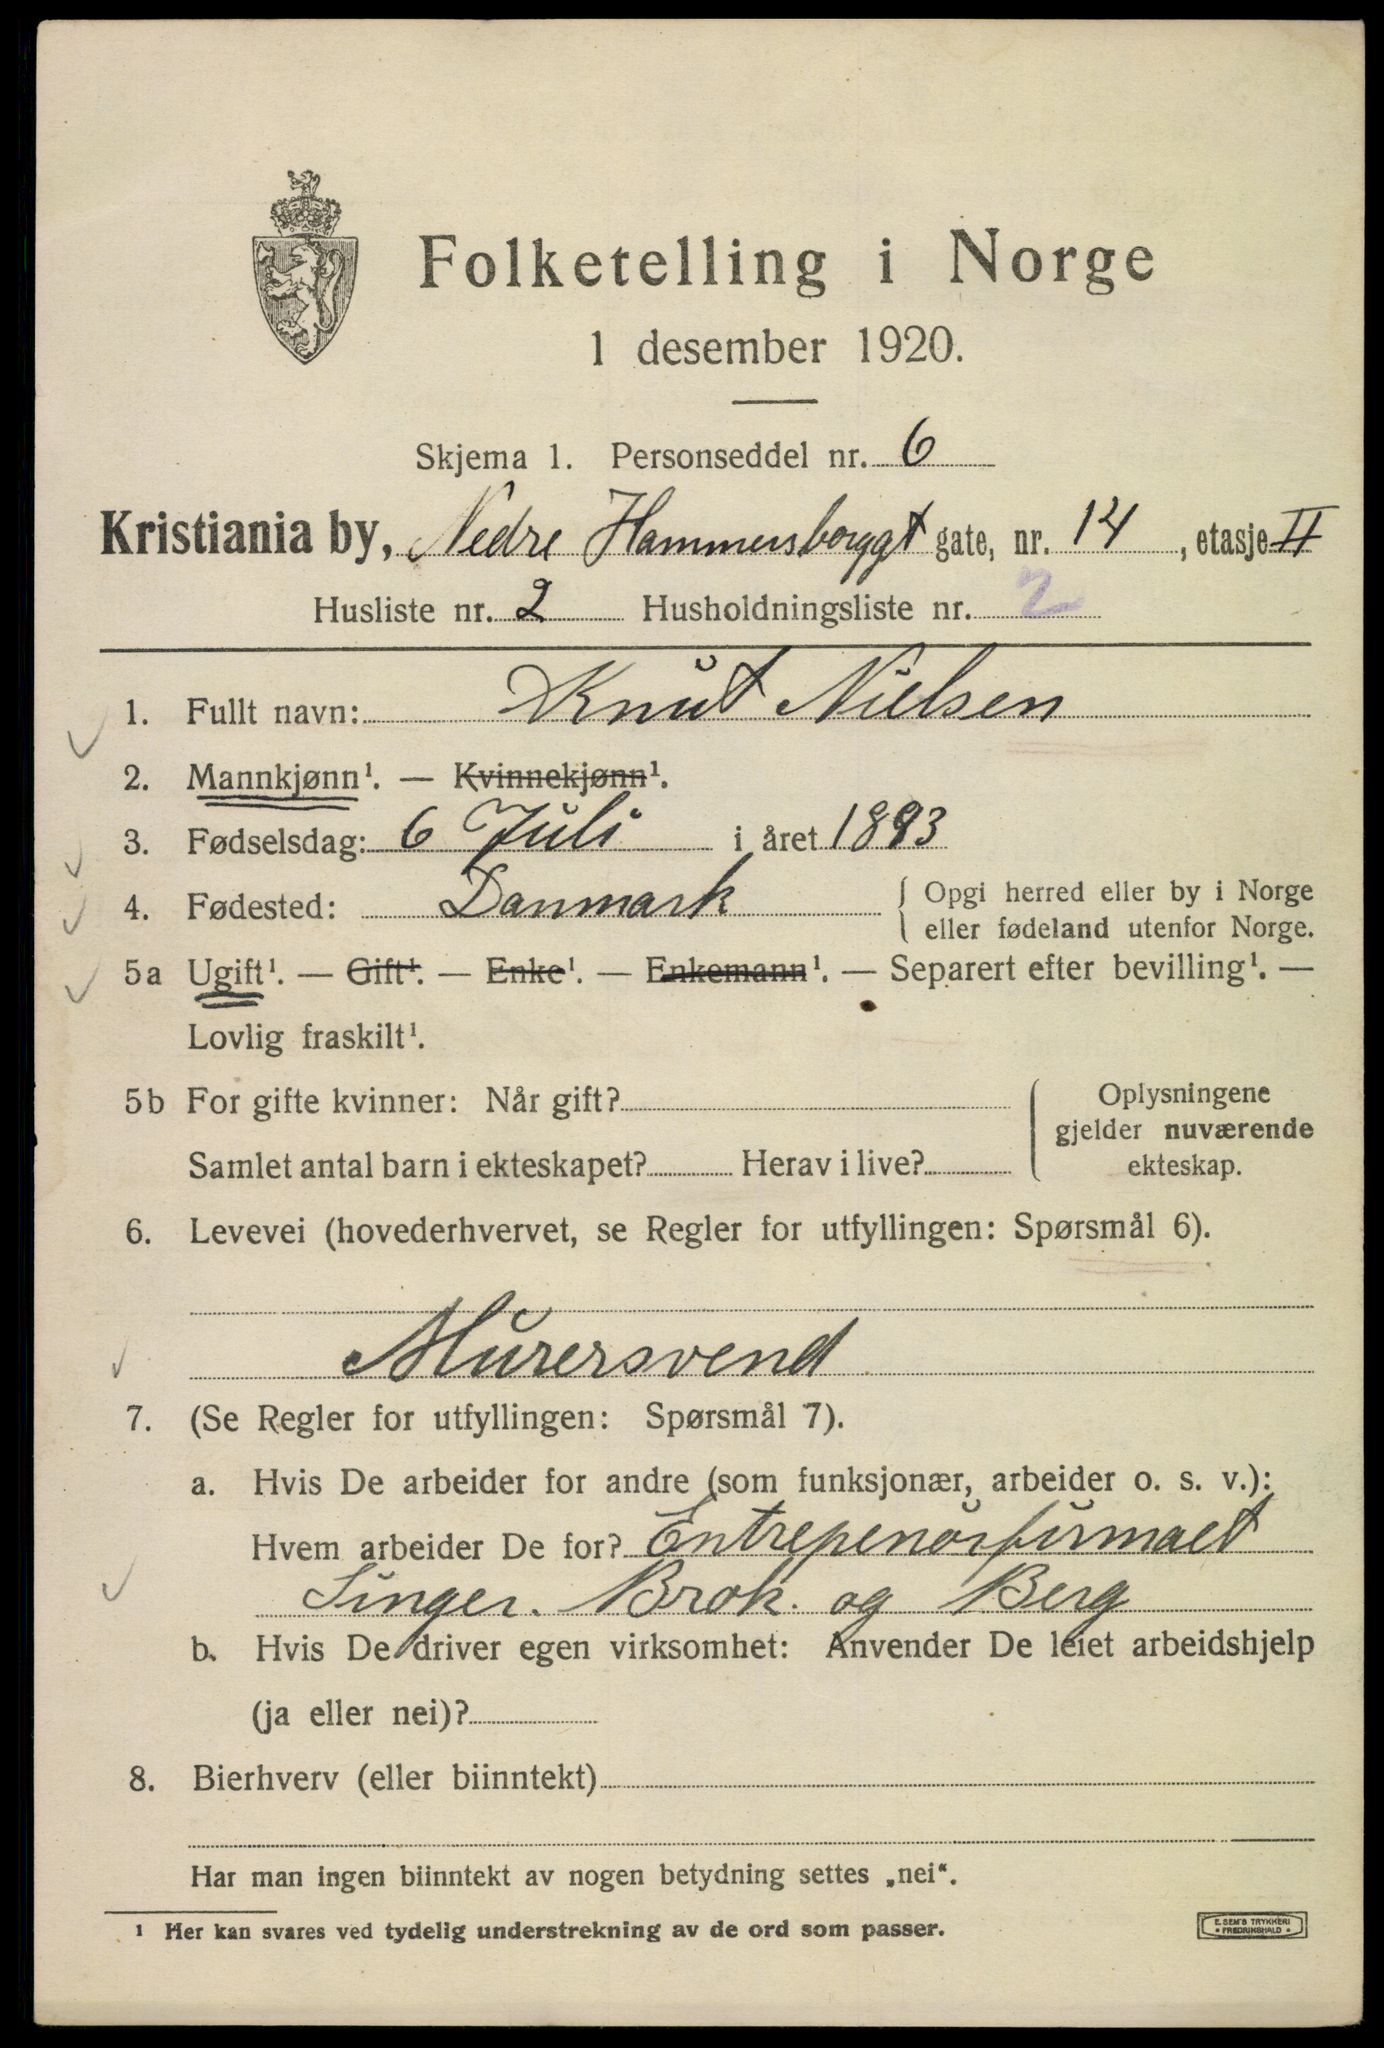 Folketelling i Norge
1 desember 1920.
Skjema 1. Personseddel nr. 6
Kristiania by, Nedre Hammersborggt gate, nr. 14, etasje II
Husliste nr. 2 Husholdningsliste nr. 2
1. Fullt navn: Knut Nielsen
2. Mannkjønn¹. — Kvinnekjønn¹.
3. Fødselsdag: 6 Juli i året 1893
4. Fødested: Danmark { Opgi herred eller by i Norge
eller fødeland utenfor Norge.
5a Ugift¹. — Gift¹. — Enke¹. — Enkemann¹. — Separert efter bevilling¹. —
Lovlig fraskilt¹.
5b For gifte kvinner: Når gift?
Samlet antal barn i ekteskapet? Herav i live?
Oplysningene
gjelder nuværende
ekteskap.
6. Levevei (hovederhvervet, se Regler for utfyllingen: Spørsmål 6).
Murersvend
7. (Se Regler for utfyllingen: Spørsmål 7).
a. Hvis De arbeider for andre (som funksjonær, arbeider o. s. v.):
Hvem arbeider De for? Entrepenørfirmaet
Singer. Brok. og Berg
b. Hvis De driver egen virksomhet: Anvender De leiet arbeidshjelp
(ja eller nei)?
8. Bierhverv (eller biinntekt)
Har man ingen biinntekt av nogen betydning settes „nei“.
¹ Her kan svares ved tydelig understrekning av de ord som passer.
E. SEM'S TRYKKERI
• FREDRIKSHALD •